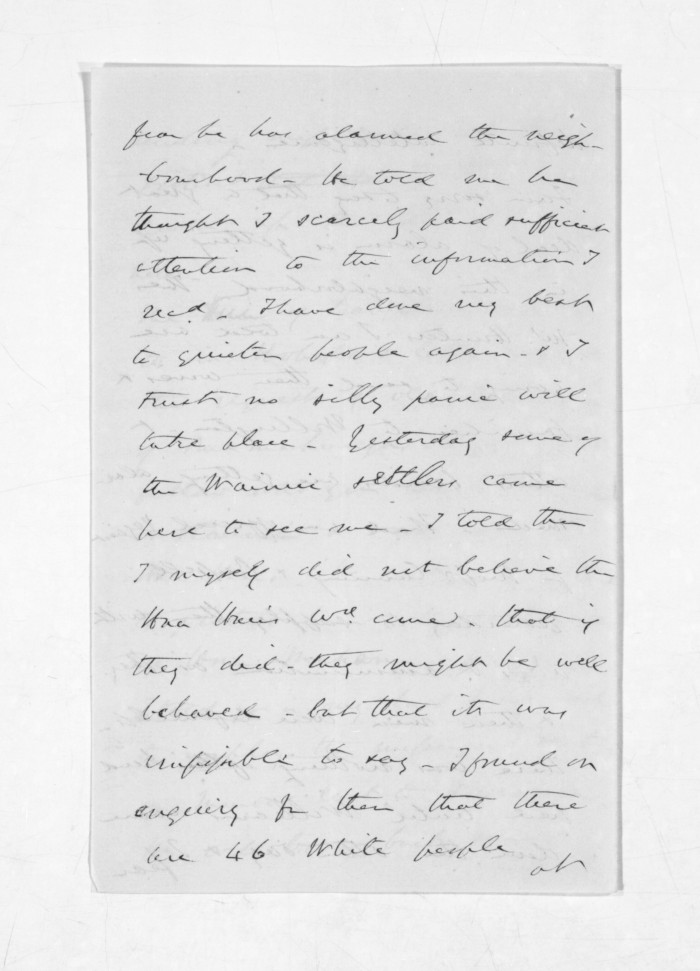 fear he has alarmed the neigh-
bourhood - He told me he
thought I scarcely paid sufficient
attention to the information I
recd. - I have done my best
to quieten people again - & I
trust no silly panic will
take place - Yesterday some of
the Wairoa settlers came
here to see me - I told them
I myself did not believe the
Hau Haus wd. come. that if
they did - they might be well
behaved - but that it was
impossible to say - I found on
enquiry fr them that there
are 46 White people
at